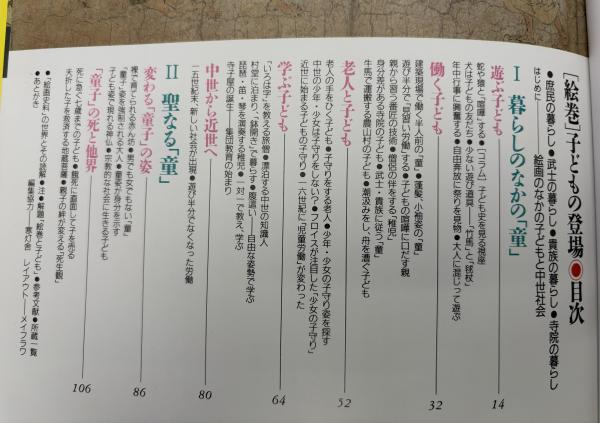 [絵巻]子どもの登場●目次
はじめに 絵画のなかの子どもと中世社会
●庶民の暮らし●武士の暮らし●貴族の暮らし●寺院の暮らし
I 暮らしのなかの「童」
遊ぶ子ども 14
蛇や猿と、"喧嘩"する●[コラム]子ども史を見る視座
犬は子どもの友だち●少ない遊び道具──「竹馬」と「毬杖」
年中行事に興奮する●自由奔放に祭りを見物●大人に混じって遊ぶ
働く子ども 32
建築現場で働く半人前の「童」●蓬髪、小袖姿の「童」
遊び半分で「見習い分働」する●子どもの喧嘩に口だす親
親から習う番匠の技術●僧侶の伴をする「稚児」
身分差がある寺院の子ども●武士・貴族に従う「童」
牛馬で運搬する農山村の子ども●潮汲みをし、舟を漕ぐ子ども
老人と子ども 52
老人の手をひく子ども●子守りをする老人●少年・少女の子守り姿を探す
中世の少年・少女は子守りをしない?●フロイスが注目した「少女の子守り」
近世に始まる子どもの子守り●一八世紀に「児童労働」が変わった
学ぶ子ども 64
「いろは字」を教える旅僧●漂泊する中世の知識人
村堂に泊まり、"鉢開き"で暮らす●腹這い──自由な姿勢で学ぶ
琵琶・笛・琴を演奏する稚児●一対一で教え、学ぶ
寺子屋の誕生──集団教育の始まり
中世から近世へ 80
一五世紀末、新しい社会が出現●遊び半分でなくなった労働
II 聖なる「童」
変わる「童子」の姿 86
裸で育てられる赤ん坊●男でも女でもない「童」
「童子」姿を強制される大人●童姿が身分を示す
子ども姿で現れる神仏●宗教的な社会に生きる子ども
「童子」の死と他界 106
死に急ぐ七歳までの子ども●餓死に直面して子を売る
夭折した子を救済する地蔵菩薩●親子の絆が変える「死生観」
●「絵画史料」の世界とその読解●注●解題「絵巻と子ども」●参考文献●所蔵一覧
●あとがき
編集協力──寒灯舎 レイアウト──メイフラワ